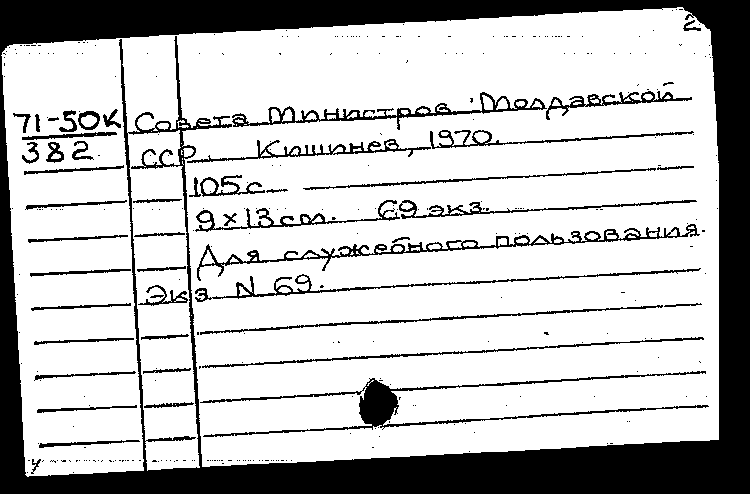 2
71-50К Совета Министров Молдавской
382 ССР. Кишинев, 1970.
105 с.
9 х 13 см. 69 экз.
Для служебного пользования.
Экз N 69.